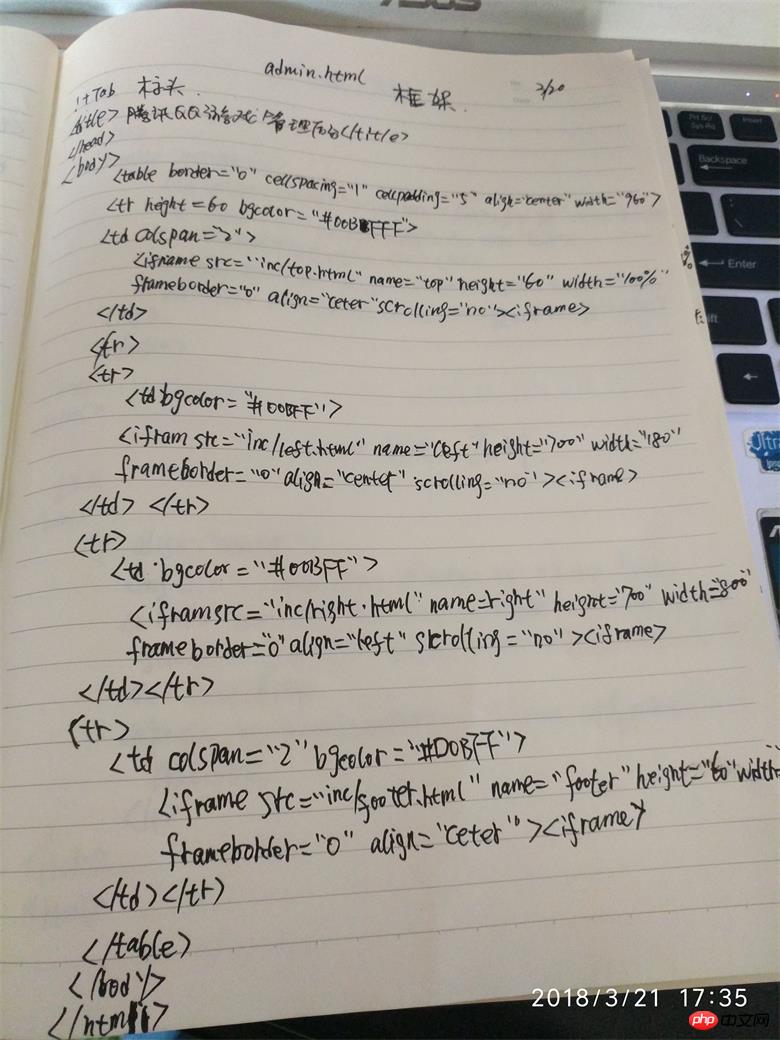 ASUS
admin.html
!+Tab 标头. 框架. 3/20
<title>腾讯QQ 管理后台</title>
</head>
</body>
<table border="0" cellspacing="1" cellpadding="5" align="center" width="960">
<tr height=60 bgcolor="#00BFFF">
<td colspan="2">
<iframe src="inc/top.html" name="top" height="60" width="100%"
frameborder="0" align="ceter" scrolling="no"><iframe>
</td>
</tr>
<tr>
<td bgcolor="#00BFF">
<ifram src="inc/left.html" name="left" height="700" width="180"
frameborder="0" align="center" scrolling="no"><iframe>
</td> </tr>
<tr>
<td bgcolor="#00BFF">
<iframsrc="inc/right.html" name=right" height="700" width="800"
frameborder="0" align="left" scrolling="no"><iframe>
</td></tr>
<tr>
<td colspan="2" bgcolor="#D0BFF">
<iframe src="inc/footer.html" name="footer" height="60" width=
frameborder="0" align="ceter"><iframe>
</td></tr>
</table>
</body>
</html>
Prt Sc/
Sys Rq
Insert
Backspace
Enter
2018/3/21 17:35
php 中文网